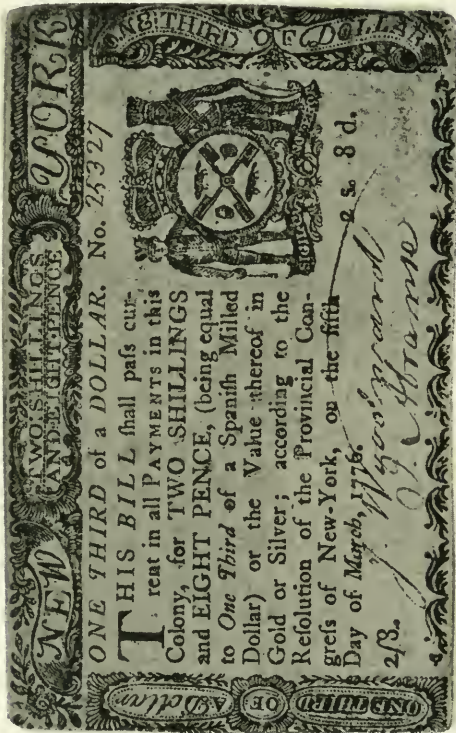 NEW TWO SHILLINGS YORK
AND EIGHT PENCE
ONE THIRD OF A DOLLAR
ONE THIRD of a DOLLAR. No. 25327
THIS BILL ſhall paſs cur-
rent in all PAYMENTS in this
Colony, for TWO SHILLINGS
and EIGHT PENCE, (being equal
to One Third of a Spaniſh Milled
Dollar) or the Value thereof in
Gold or Silver; according to the
Reſolution of the Provincial Con-
greſs of New-York, on the fifth
Day of March, 1776.
2 s. 8 d.
2/8.
ONE THIRD OF DOLLAR